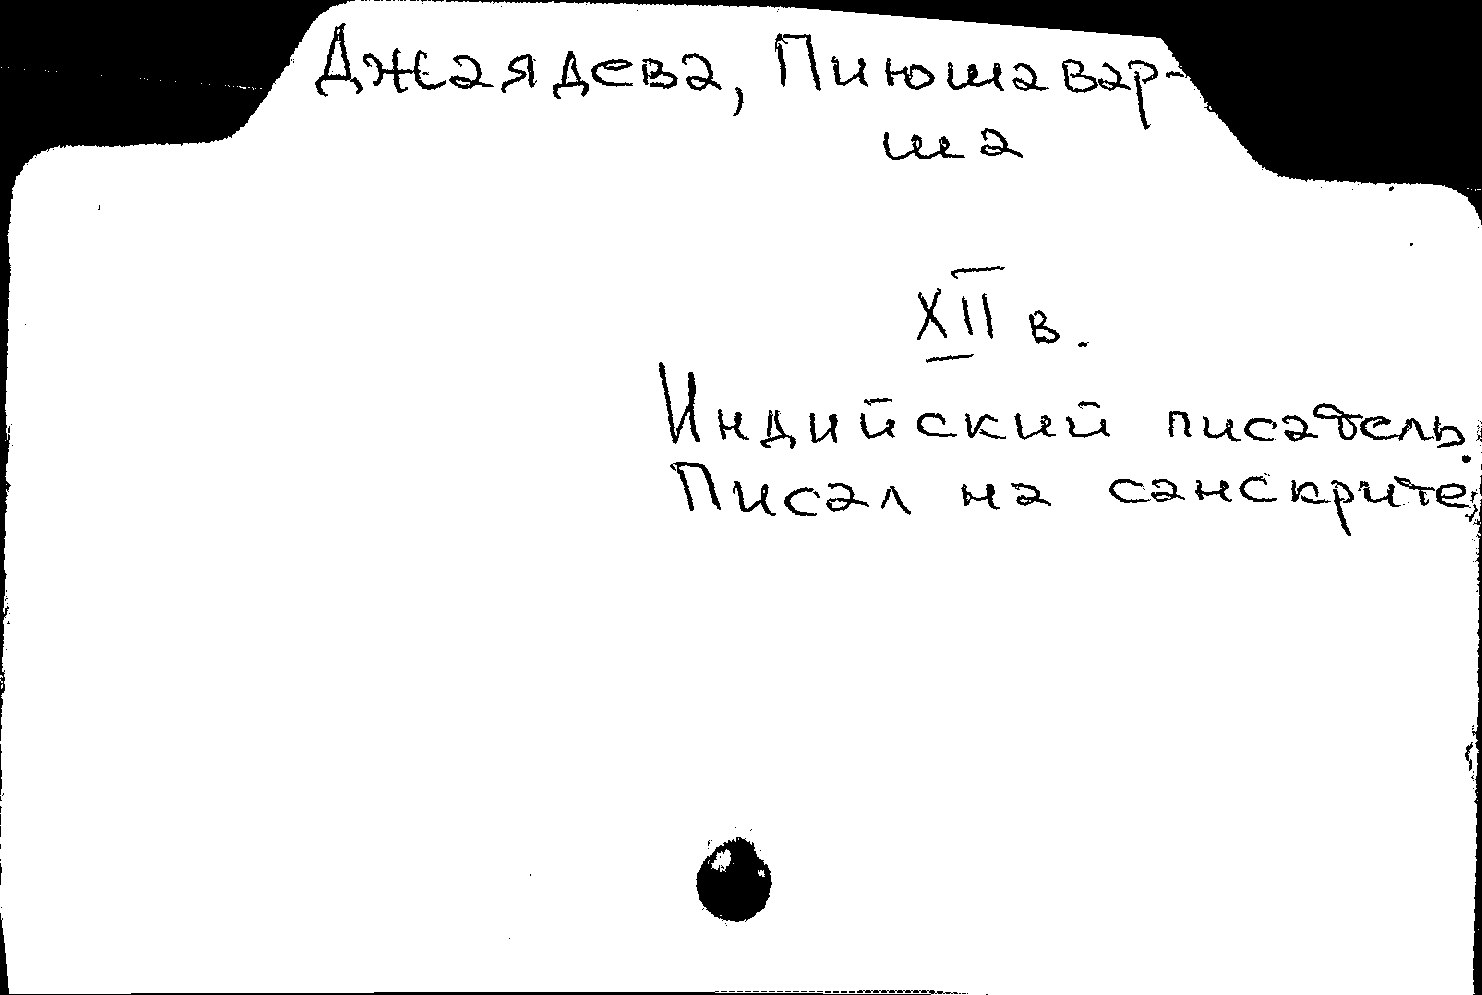 Джаядева, Пиюшавар-
ша
XII в.
Индийский писатель.
Писал на санскрите